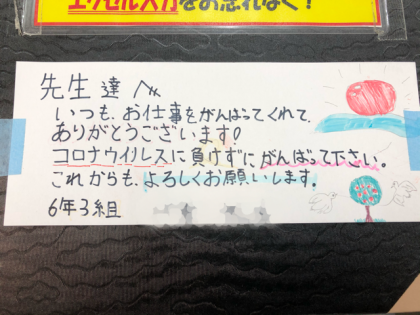 エクセル入力をお忘れなく!
先生達へ
いつも、お仕事をがんばってくれて、
ありがとうございます!
コロナウイルスに負けずにがんばって下さい。
これからも、よろしくお願いします。
6年3組